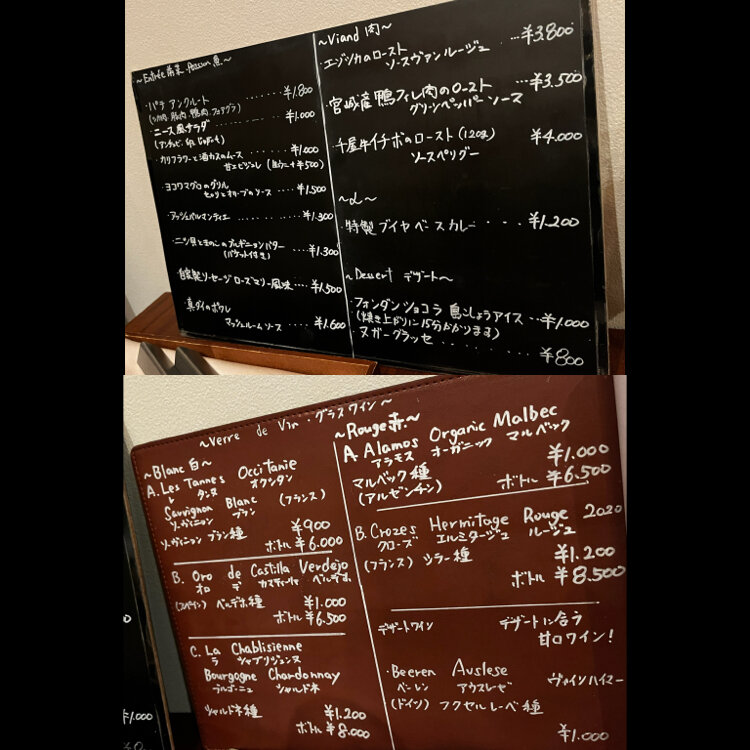 ~Entrée 前菜 Poisson 魚~
・パテ アンクルート ‥‥‥ ¥1.800
(うり肉 豚肉 鴨肉 フォアグラ)
・ニース風サラダ ‥‥‥ ¥1.000
(アンチョビ
・カリフラワーと酒カスのムース ‥‥ ¥1.000
甘エビジュレ ( +¥500)
・ヨコワマグロのグリル
セロリとオリーブのソース ‥‥ ¥1.500
・アッシェパルマンティエ ‥‥ ¥1.300
・ニシ貝ときのこのブルギニョンバター ‥‥ ¥1.300
(バケット付き)
・自家製ソーセージローズマリー風味 ‥‥ ¥1.500
・真ダイのポワレ
マッシュルームソース ‥‥ ¥1.600
~Viand 肉~
・エゾジカのロースト ‥‥ ¥3.800
ソースヴァンルージュ
・宮城産鴨フィレ肉のロースト ‥‥ ¥3.500
グリーンペッパーソース
・千屋牛イチボのロースト (120g) ‥‥ ¥4.000
ソースペリグー
・特製ブイヤベースカレー ・・・・ ¥1.200
~Dessert デザート~
・フォンダンショコラ 黒こしょうアイス ‥‥ ¥1.000
(焼き上がりに15分かかります)
・ヌガーグラッセ ‥‥‥ ¥800
~Verre de Vin・グラスワイン~
~Blanc 白~
A. Les Tannes Occitanie
レ タンヌ オクシタン
Sauvignon Blanc (フランス)
ソーヴィニヨン ブラン
ソーヴィニヨン ブラン種 ¥900
ボトル ¥6.000
B. Oro de Castilla Verdejo
オロ デ カスティーリャ ベルデホ
(スペイン) ベルデホ種 ¥1.000
ボトル ¥6.500
C. La Chablisienne
ラ シャブリジェンヌ
Bourgogne Chardonnay
ブルゴーニュ シャルドネ
シャルドネ種 ¥1.200
ボトル ¥8.000
~Rouge 赤.~
A. Alamos Organic Malbec
アラモス オーガニック マルベック
マルベック種 ¥1.000
(アルゼンチン) ボトル ¥6.500
B. Crozes Hermitage Rouge 2020
クローズ エルミタージュ ルージュ
(フランス) シラー種 ¥1.200
ボトル ¥8.500
デザートワイン デザートに合う
甘口ワイン!
・Beeren Auslese ヴァインハイマー
ベーレン アウスレーゼ
(ドイツ) フクセルレーベ種
¥1.000
¥1.000